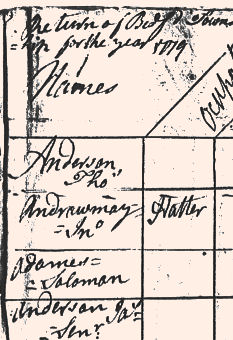 Return of Bedf.d Towns
=hip for the year 1779
Names
Anderson
Tho.s
Andrawmay- Hatter
=Jn.o
Adames=
=Solomon
Anderson Ja.s
=Sen.r